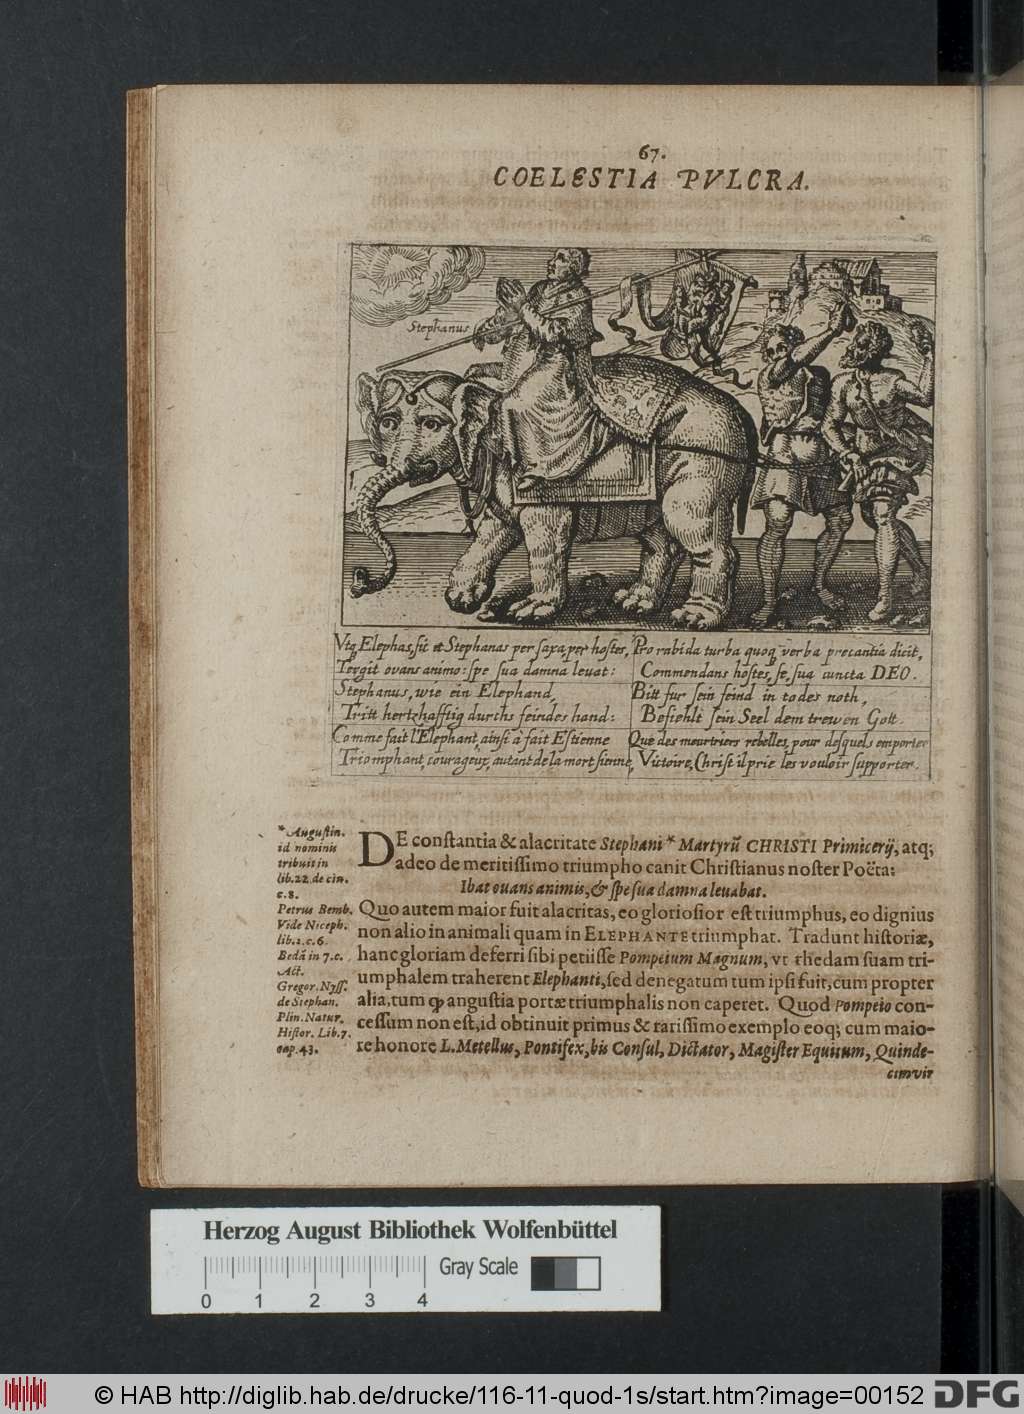 67.
COELESTIA PVLCRA.
Stephanus
Vtq Elephas, sic et Stephanas per saxa, per hostes,
Tergit ovans animo: spe sua damna levat:
Pro rabida turba quoq verba precantia dicit,
Commendans hostes, se, sua cuncta DEO.
Stephanus, wie ein Elephand,
Tritt hertzhafftig durchs feindes hand:
Bitt fur sein feind in todes noth,
Befiehlt sein Seel dem trewen Gott.
Comme fait l'Elephant, ainsi a fait Estienne
Triomphant, courageux, autant de la mort sienne,
Que des meurtriers rebelles, pour desquels emporter
Victoire, Christ il prie les vouloir supporter.
* Augustin.
id nominis
tribuit in
lib. 22. de civ.
c. 8.
Petrus Bemb.
Vide Niceph.
lib. 2. c. 6.
Bedã in 7. c.
Act.
Gregor. Nyss.
de Stephan.
Plin. Natur.
Histor. Lib. 7.
cap. 43.
DE constantia & alacritate Stephani * Martyrũ CHRISTI Primicerij, atq;
adeo de meritissimo triumpho canit Christianus noster Poëta:
Ibat ovans animis, & spe sua damna levabat.
Quo autem maior fuit alacritas, eo gloriosior est triumphus, eo dignius
non alio in animali quam in ELEPHANTE triumphat. Tradunt historiæ,
hanc gloriam deferri sibi petiisse Pompeium Magnum, vt rhedam suam tri-
umphalem traherent Elephanti, sed denegatum tum ipsi fuit, cum propter
alia, tum ꝙ angustia portæ triumphalis non caperet. Quod Pompeio con-
cessum non est, id obtinuit primus & rarissimo exemplo eoq; cum maio-
re honore L. Metellus, Pontifex, bis Consul, Dictator, Magister Equitum, Quinde-
cimvir
Herzog August Bibliothek Wolfenbüttel
Gray Scale
0 1 2 3 4
© HAB http://diglib.hab.de/drucke/116-11-quod-1s/start.htm?image=00152
DFG